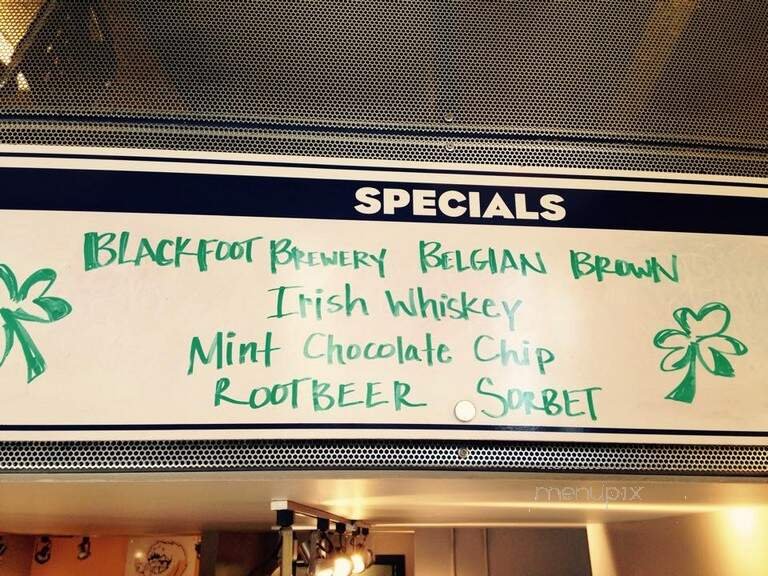 SPECIALS
BLACKFOOT BREWERY BELGIAN BROWN
Irish Whiskey
Mint Chocolate Chip
ROOTBEER SORBET
menupix